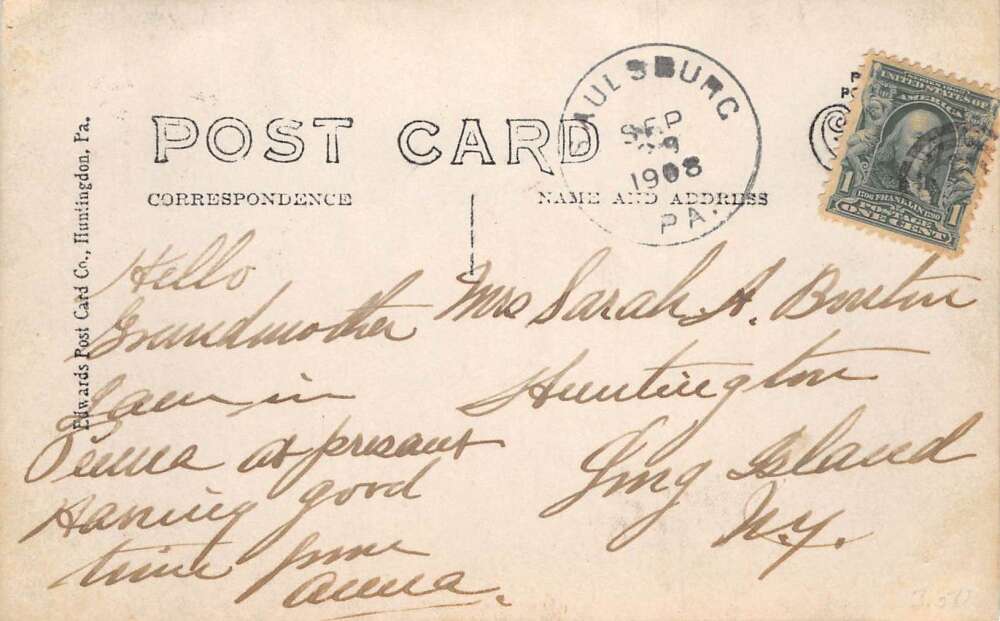 AULSBURG
SEP
29
1908
PA.
UNITED STATES OF
AMERICA
1706 FRANKLIN 1790
1 POSTAGE 1
ONE CENT
POST CARD
CORRESPONDENCE
NAME AND ADDRESS
Edwards Post Card Co., Huntingdon, Pa.
Hello
Grandmother
I am in
Penna at present
Having good
time from
Anna.
Mrs Sarah A. Bouton
Huntington
Long Island
N.Y.